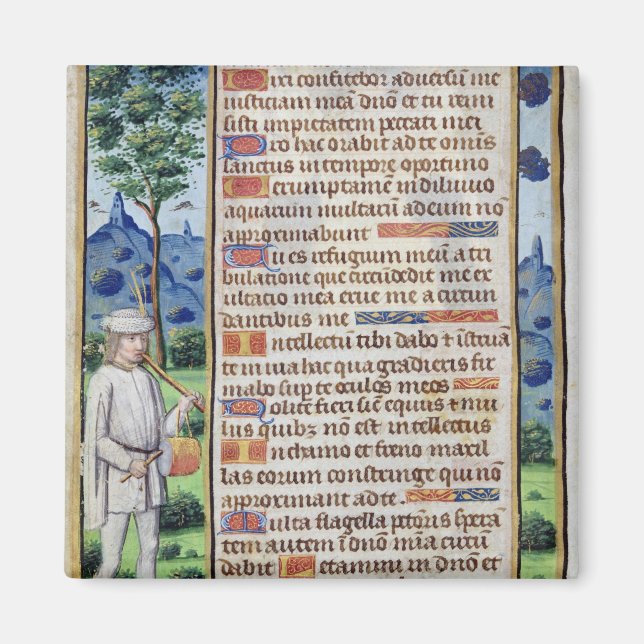 Dixi confitebor adversū me
iusticiam meā dnō et tu remi
sisti impietatem peccati mei
Pro hac orabit ad te omīs
sanctus in tempore oportuno
Verumptamē in diluvio
aquarum multarū ad eum nō
approximabunt
Tu es refugium meū a tri
bulatione que circūdedit me ex
ultacio mea erue me a circun
dantibus me
Intellectū tibi dabo ⁊ īstruā
te in via hac qua gradieris fir
mabo sup te oculos meos
Nolite fieri sic̄ equus ⁊ mu
lus quibz nō est intellectus
In chamo et freno maxil
las eorum constringe qui nō
approximant ad te.
Multa flagella pctōris sperā
tem autem ī dnō mīa circū
dabit Letamini in dnō et